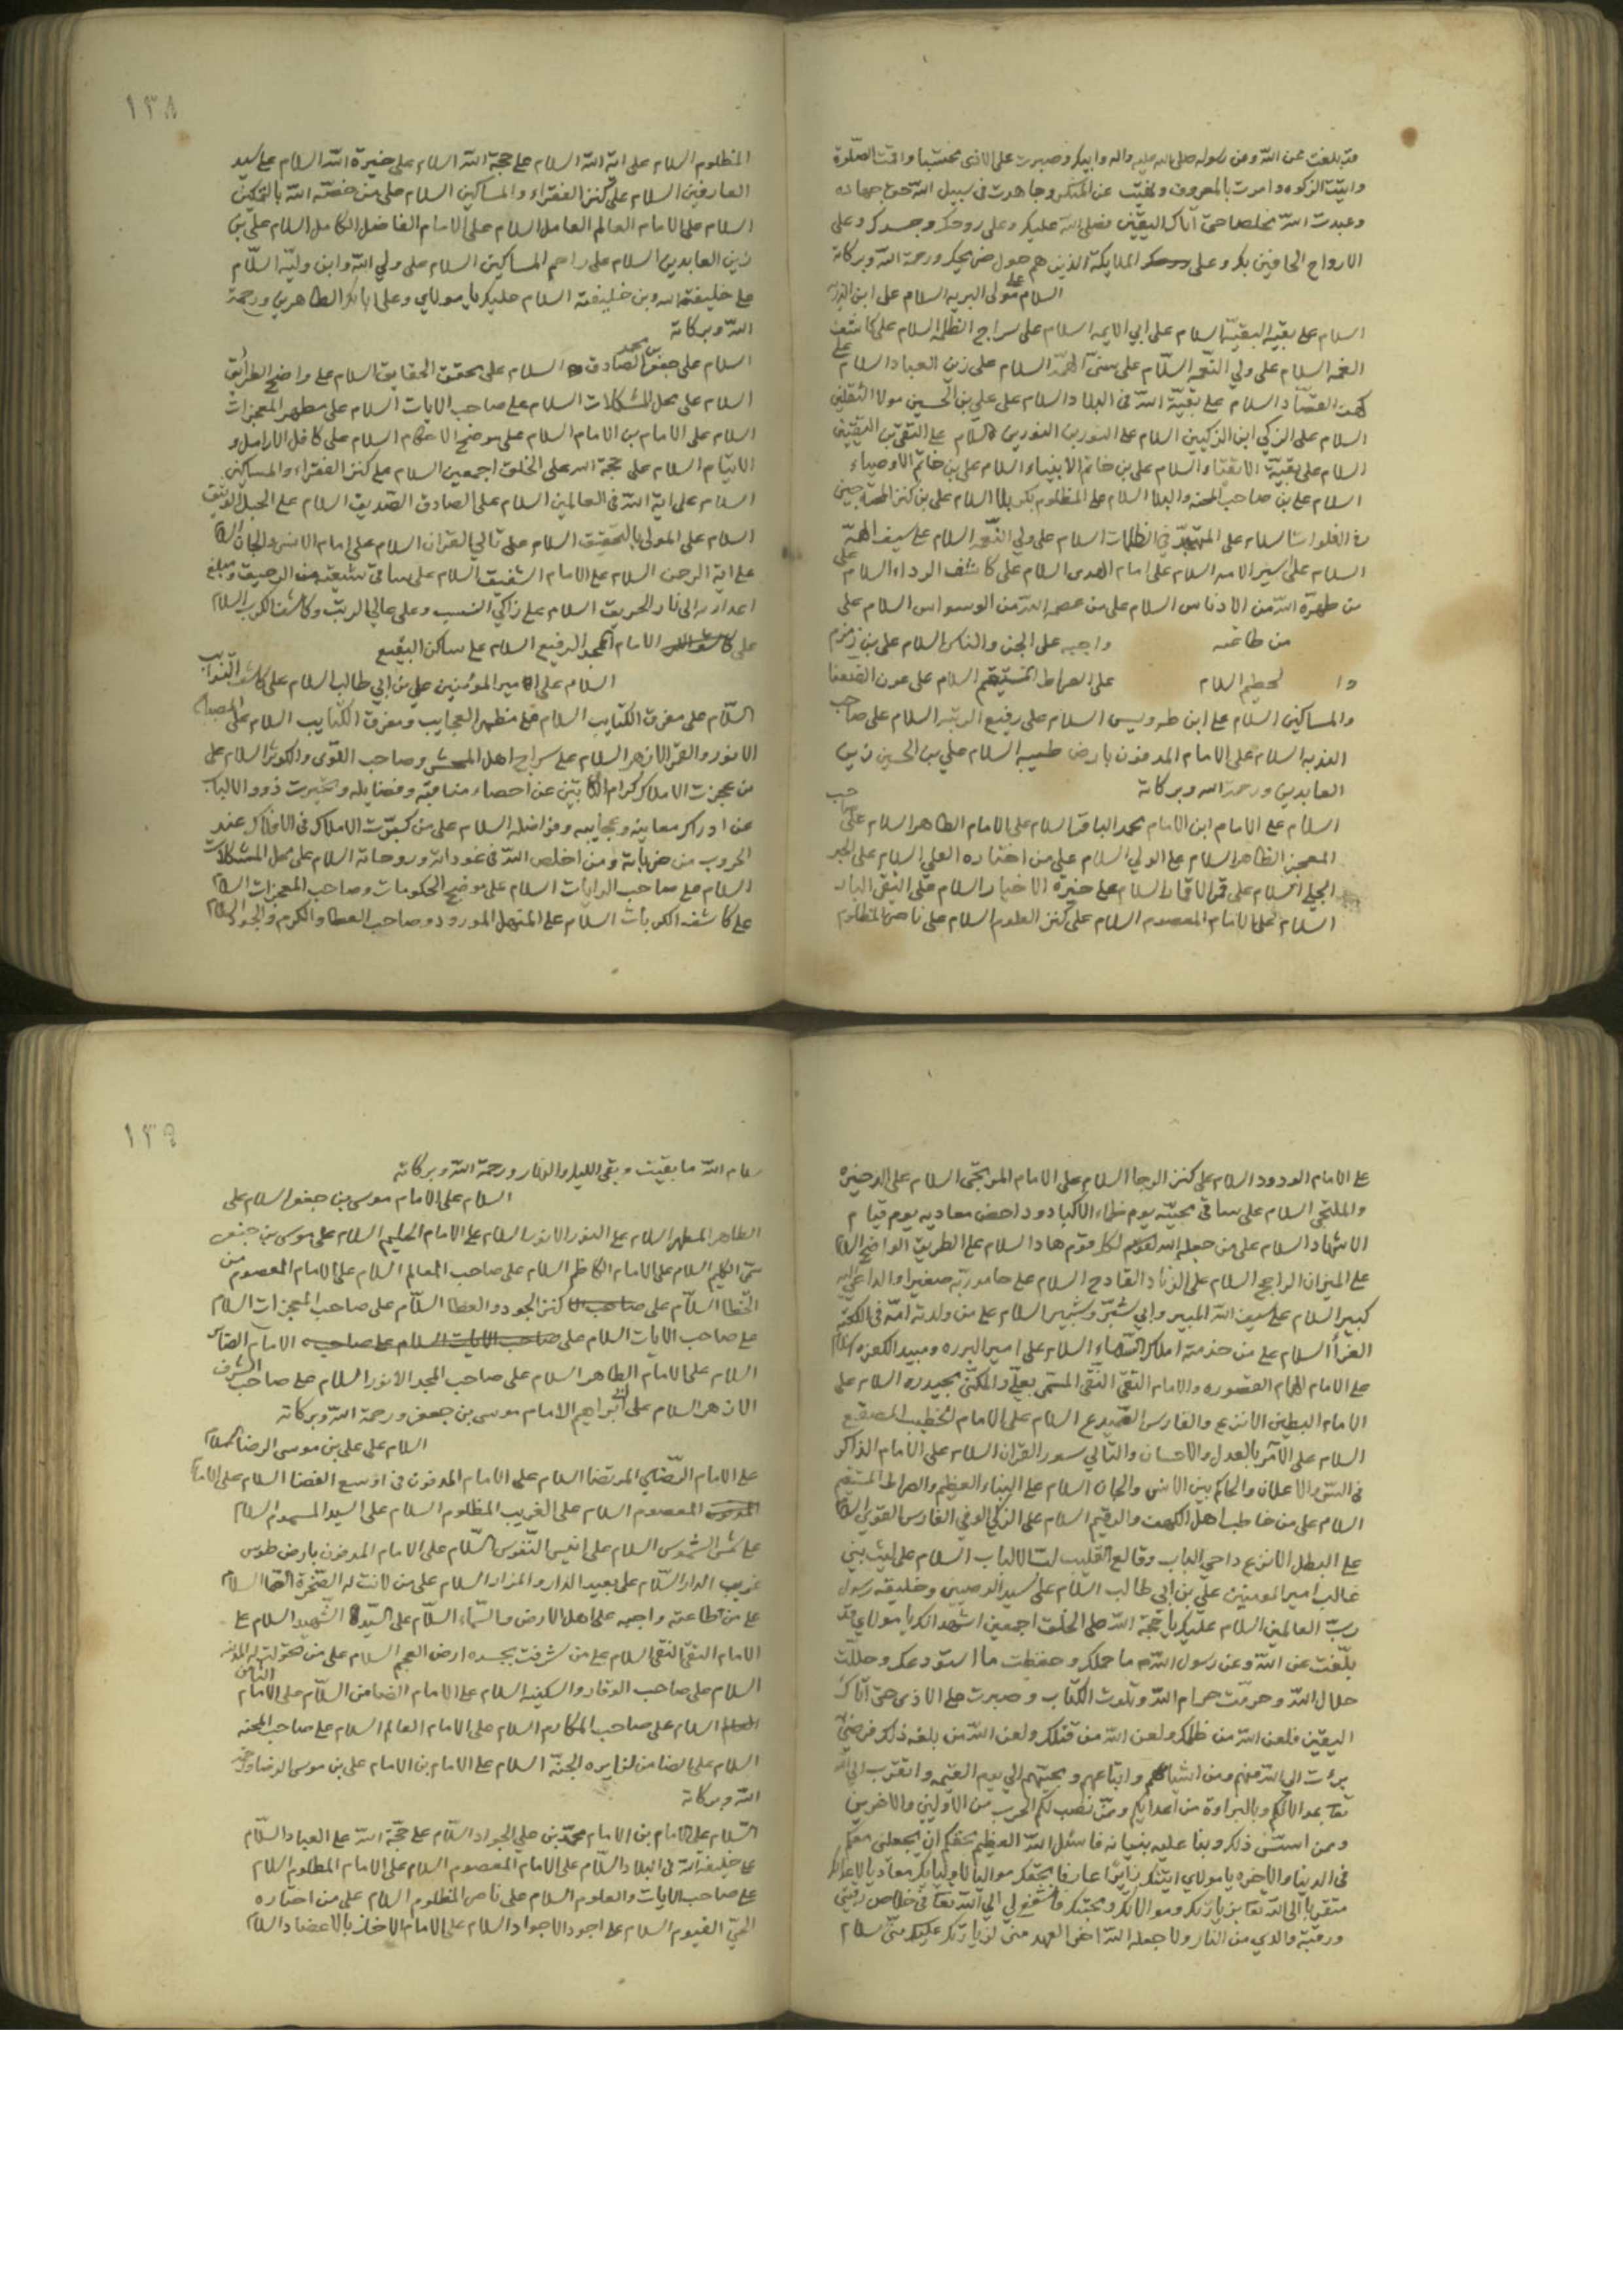 قد بلغت عن الله وعن رسوله صلى الله عليه واله وابيك وصبرت على الاذى محتسبا واقمت الصلوة
واتيت الزكوه وامرت بالمعروف ونهيت عن المنكر وجاهدت في سبيل الله حق جهاده
وعبدت الله مخلصا حتى اتاك اليقين فصلى الله عليك وعلى روحك وجسدك وعلى
الارواح الحافين بك وعلى الملايكة الذين هم حول ضريحك ورحمة الله وبركاته
السلام على مولى البريه السلام على ابن
السلام على بقية البقية السلام على ابي الايمه السلام على سراج الظلمه السلام على كاشف
الغمه السلام على ولي النعمه السلام على سنى الهمه السلام على زين العباد السلام على
كهف القصاد السلام على بقية الله في البلاد السلام على علي بن الحسين مولا الثقلين
السلام على الزكي ابن الزكيين السلام على النور بن النورين السلام على التقي بن التقيين
السلام على بقية الاتقياء السلام على بن خاتم الانبياء السلام على بن خاتم الاوصياء
السلام على بن صاحب المحنه والبلا السلام على المظلوم بكربلا السلام على بن كنز
السلام على المتهجد في الظلمات السلام على ولي النعمه السلام على سيف
السلام على اسير الامه السلام على امام الهدى السلام على كاشف الرداء السلام على
من طهره الله من الادناس السلام على من عصمه الله من الوسواس السلام على
من طاعته واجبه على الجن والناس السلام على بن زمزم
وا لحطيم السلام على الصراط المستقيم السلام على عون الضعفا
والمساكين السلام على ابن طه ويس السلام على رفيع الرتبه السلام على صاحب
السلام على الامام المدفون بارض طيبه السلام على علي بن الحسين زين
العابدين ورحمة الله وبركاته
السلام على الامام ابن الامام محمد الباقر السلام على الامام الطاهر السلام على صاحب
المعجز الظاهر السلام على الولي السلام على من اختاره العلي السلام على
الجلي السلام على قمر الاقمار السلام على خيرة الاخيار السلام على التقي البار
السلام على الامام المعصوم السلام على كنز العلوم السلام على ناصر المظلوم
١٣٨
المظلوم السلام على اية الله السلام على حجة الله السلام على خيرة الله السلام على سيد
العارفين السلام على كنز الفقراء والمساكين السلام على من خصه الله بالتمكين
السلام على الامام العالم العامل السلام على الامام الفاضل الكامل السلام على بن
زين العابدين السلام على راحم المساكين السلام على ولي الله وابن وليه السلام
على خليفة الله وبن خليفته السلام عليك يا مولاي وعلى ابائك الطاهرين ورحمة
الله وبركاته
السلام على جعفر بن محمد الصادق السلام على محقق الحقايق السلام على واضح الطرائق
السلام على محل المشكلات السلام على صاحب الايات السلام على مظهر المعجزات
السلام على الامام بن الامام السلام على موضح الاحكام السلام على كافل الارامل و
الايتام السلام على حجة الله على الخلق اجمعين السلام على كنز الفقراء والمساكين
السلام على اية الله في العالمين السلام على الصادق الصديق السلام على الحبل الوثيق
السلام على المولى بالتحقيق السلام على تالي القران السلام على امام الانس والجان السلام
على اية الرحمن السلام على الامام الشفيق السلام على ساقي شيعته من الرحيق ومبلغ
اعدائه الى نار الحريق السلام على زاكي النسب وعلى عالي الرتب وكاشف الكرب السلام
على الامام المجد الرفيع السلام على ساكن البقيع
السلام على امير المومنين علي بن ابي طالب السلام على كاشف النوايب
السلام على مفرق الكتايب السلام على مظهر العجايب ومفرق الكتايب السلام على المصباح
الانور والقمر الازهر السلام على سراج اهل المحشر وصاحب القوى والكوثر السلام على
من عجزت الاملاك كرام الكاتبين عن احصاء مناقبه وفضايله وتحيرت ذوو الالباب
عن ادراك معانيه وعجايبه وفواضله السلام على من تعجبت الاملاك في الافلاك عند
الحروب من ضرباته ومن اخلص الله في غدواته وروحاته السلام على محل المشكلات
السلام على صاحب الرايات السلام على موضح الحكومات وصاحب المعجزات السلام
على كاشف الكربات السلام على المنهل المورود وصاحب العطا والكرم والجود السلام
على الامام الودود السلام على كنز الرجا السلام على الامام المرتجى السلام على الذخيره
والملتجى السلام على ساقي محبيه يوم ظماء الاكباد وداحض معاديه يوم قيام
الاشهاد السلام على من جعله الله لكل قوم هاد السلام على الطريق الواضح السلام
على الميزان الراجح السلام على الزناد القادح السلام على حامد ربه صغيرا والداعي اليه
كبيرا السلام على سيف الله المبير وابي شبر وشبير السلام على من ولدته امه في الكعبة
الغرا السلام على من خدمته املاك السماء السلام على امير البرره ومبيد الكفره السلام
على الامام والامام التقي النقي المسمى بعلي والمكنى بحيدره السلام على
الامام البطين الانزع والفارس السميدع السلام على الامام الخطيب المصقع
السلام على الآمر بالعدل والاحسان والتالي سور القران السلام على الامام الذاكر
في السر والاعلان والحاكم بين الانس والجان السلام على النباء العظيم والصراط المستقيم
السلام على من خاطب اهل الكهف والرقيم السلام على الزكي الوفي الفارس القوي السلام
على البطل الانزع داحي الباب وقالع القليب السلام على ليث بني
غالب امير المومنين علي بن ابي طالب السلام على سيد الوصيين وخليفة رسول
رب العالمين السلام عليك يا حجة الله على الخلق اجمعين اشهد انك يا مولاي قد
بلغت عن الله وعن رسول الله ما حملك وحفظت ما استودعك وحللت
حلال الله وحرمت حرام الله وتلوت الكتاب وصبرت على الاذى حتى اتاك
اليقين فلعن الله من ظلمك ولعن الله من قتلك ولعن الله من بلغه ذلك فرضي
برئت الى الله منهم ومن اشياعهم واتباعهم ومحبيهم الى يوم القيمه واتقرب الى الله
بموالاتكم وبالبراءة من اعدائكم وممن نصب لكم الحرب من الاولين والاخرين
وممن اسس ذلك وبنا عليه بنيانه فاسئل الله العظيم بحقكم ان يجعلني معكم
في الدنيا والاخره يا مولاي اتيتك زايرا عارفا بحقك مواليا لاوليائك معاديا لاعدائك
متقربا الى الله تعا بزيارتك وموالاتك ومحبتك فاشفع لي الى الله تعا في خلاص رقبتي
ورقبة والدي من النار ولا جعله الله اخر العهد مني لزيارتك عليك مني سلام
١٣٩
سلام الله ما بقيت وبقي الليل والنهار ورحمة الله وبركاته
السلام على الامام موسى بن جعفر السلام على
الطاهر المطهر السلام على النور الانور السلام على الامام الحليم السلام على موسى بن جعفر
سمي الكليم السلام على الامام الكاظم السلام على صاحب المعالم السلام على الامام المعصوم من
الخطا السلام على كنز الجود والعطا السلام على صاحب المعجزات السلام
على صاحب الايات السلام على الامام الصابر
السلام على الامام الطاهر السلام على صاحب المجد الانور السلام على صاحب الشرف
الازهر السلام على ابي ابراهيم الامام موسى بن جعفر ورحمة الله وبركاته
السلام على علي بن موسى الرضا السلام
على الامام الرضي المرتضا السلام على الامام المدفون في اوسع الفضا السلام على الامام
المعصوم السلام على الغريب المظلوم السلام على السيد المسموم السلام
على شمس الشموس السلام على انيس النفوس السلام على الامام المدفون بارض طوس
غريب الدار السلام على بعيد الدار والمزار السلام على من لانت له الصخرة الصما السلام
على من طاعته واجبه على اهل الارض والسماء السلام على السيد الشهيد السلام على
الامام التقي النقي السلام على من شرفت بجسده ارض العجم السلام على من
السلام على صاحب الوقار والسكينه السلام على الامام الضامن السلام على الامام الثامن
السلام على صاحب المكارم السلام على الامام العالم السلام على صاحب المحنه
السلام على الضامن لزايره الجنة السلام على الامام بن الامام علي بن موسى الرضا ورحمة
الله وبركاته
السلام على الامام بن الامام محمد بن علي الجواد السلام على حجة الله على العباد السلام
على خليفة الله في البلاد السلام على الامام المعصوم السلام على الامام المظلوم السلام
على صاحب الايات والعلوم السلام على ناصر المظلوم السلام على من اختاره
الحي القيوم السلام على اجود الاجواد السلام على الامام